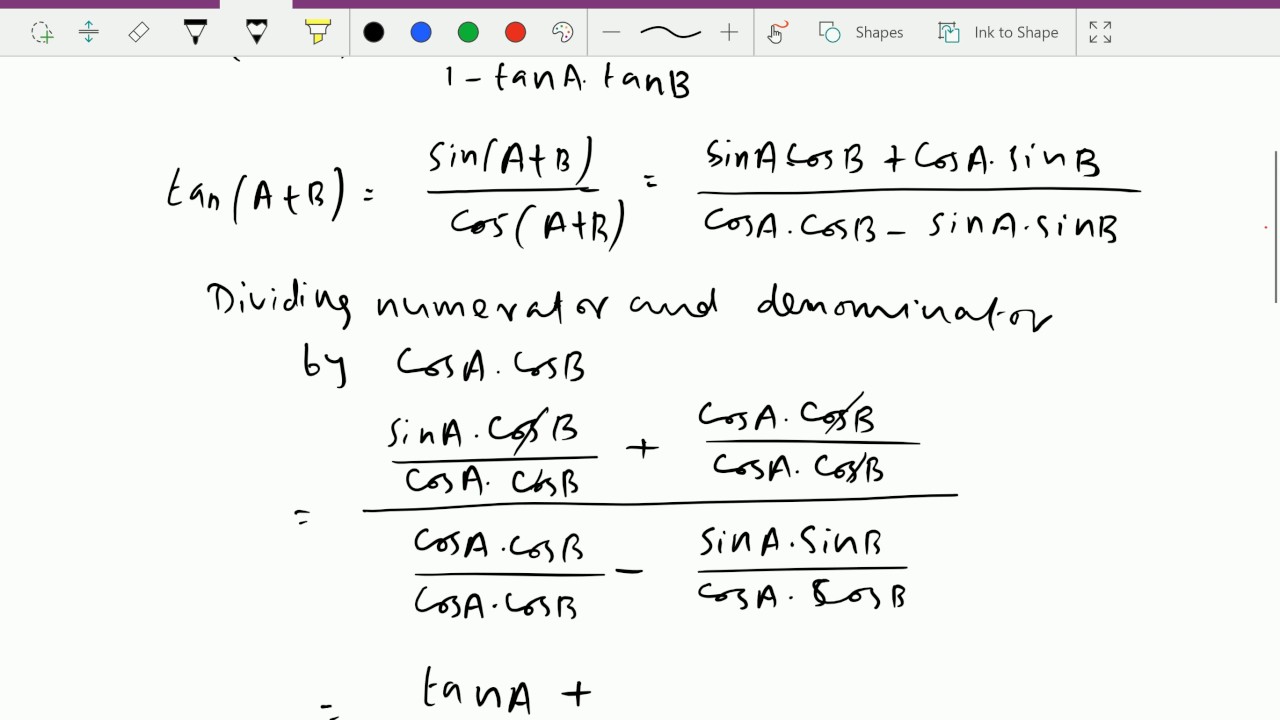 Shapes Ink to Shape
1 - tanA. tanB
tan(A+B) = sin(A+B) / cos(A+B) = sinA cosB + cosA. sinB / cosA. cosB - sinA. sinB
Dividing numerator and denominator
by cosA. cosB
= sinA. cosB / cosA. cosB + cosA. cosB / cosA. cosB
cosA. cosB / cosA. cosB - sinA. sinB / cosA. cosB
= tanA +